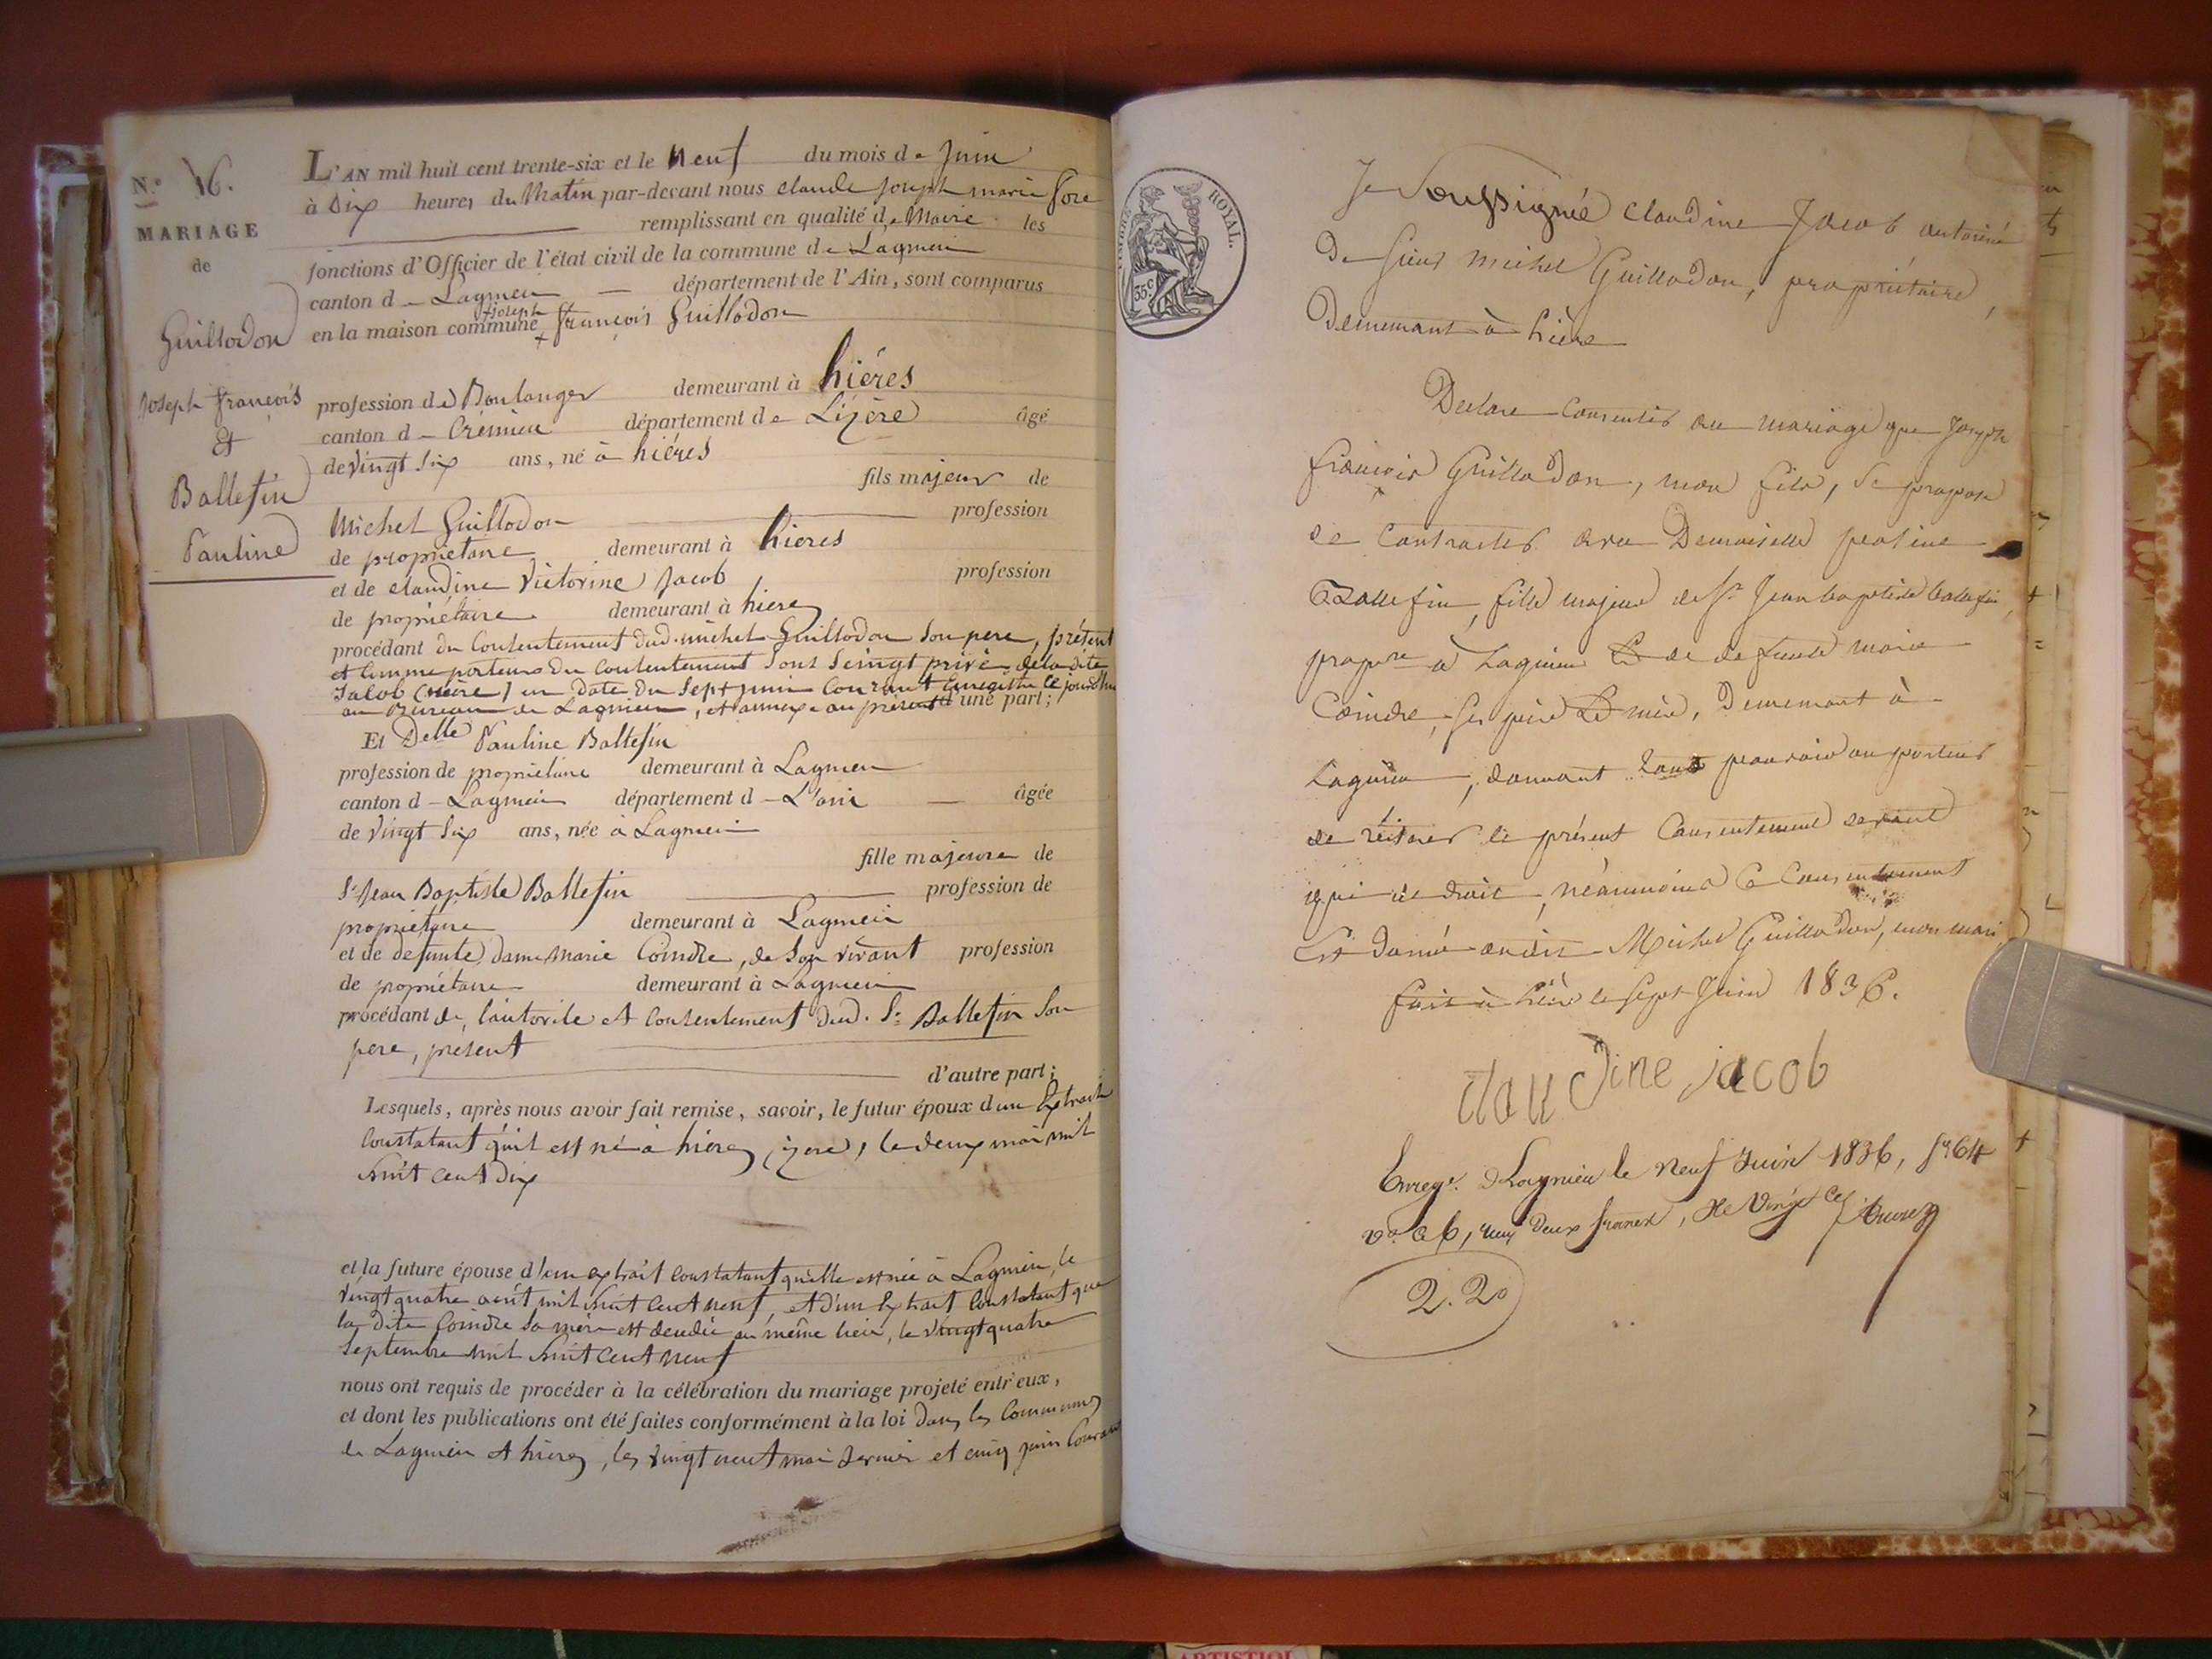 N.º 16.
MARIAGE
de
Guillodon
Joseph françois
et
Ballefin
Pauline
L'AN mil huit cent trente-six et le neuf du mois de Juin
à Dix heures du Matin par-devant nous claude joseph marie
remplissant en qualité de Maire les
fonctions d'Officier de l'état civil de la commune de Lagnieu
canton de Lagnieu département de l'Ain, sont comparus
+ joseph
en la maison commune + françois Guillodon
profession de Boulanger demeurant à hiéres
canton de Crémieu département de Lizère âgé
de vingt six ans, né à hiéres
fils majeur de
Michel Guillodon profession
de propriétaire demeurant à hieres
et de claudine Victorine Jacob profession
de propriétaire demeurant à hieres
procédant du Consentement dud. michel Guillodon son pere, présent
et comme porteur du Consentement sous seingt privé de la dite
Jacob (mère) en Date du sept juin Courant Enregistré ce jourdhui
au Bureau de Lagnieu, et annexé au présent d'une part;
Et Delle Pauline Ballefin
profession de propriétaire demeurant à Lagnieu
canton de Lagnieu département de L'ain âgée
de vingt six ans, née à Lagnieu
fille majeure de
Sr Jean Baptiste Ballefin profession de
propriétaire demeurant à Lagnieu
et de defunte dame Marie Coindre, de son vivant profession
de propriétaire demeurant à Lagnieu
procédant de l'autorité et consentement dud. Sr Ballefin son
pere, présent
d'autre part;
Lesquels, après nous avoir fait remise, savoir, le futur époux d'un Extrait
Constatant qu'il est né à hieres (izere), le deux mai mil
huit cent dix
et la future épouse d'un extrait constatant qu'elle est née à Lagnieu, le
vingt quatre août mil huit cent neuf, et d'un Extrait Constatant que
la dite Coindre sa mère est décédée au même lieu, le vingt quatre
Septembre mil huit cent neuf
nous ont requis de procéder à la célébration du mariage projeté entr'eux,
et dont les publications ont été faites conformément à la loi dans les Communes
de Lagnieu et hieres, les vingt neuf mai dernier et cinq juin Courant
ROYAL.
35c
Je Soussignée Claudine Jacob autorisée
De sieur Michel Guillodon, propriétaire,
Demeurant à hière
Declare Consentir au mariage que Joseph
françois Guillodon, mon fils, se propose
de Contracter avec Demoiselle poline
Ballefin, fille majeure de Sr Jean baptiste balefin,
propre à Lagnieu Et de defunte marie
Coindre, ses père Et mère, Demeurant à
Lagnieu, donnant tout pouvoir au porteur
de réitérer le présent Consentement devant
qui de droit, néanmoins ce Consentement
Est donné audit Michel Guillodon, mon mari
fait à hière le Sept Juin 1836.
claudine jacob
Enregé. à Lagnieu le neuf Juin 1836, fo 64
vo. c 6, reçu deux francs, De vingt ces
2. 20